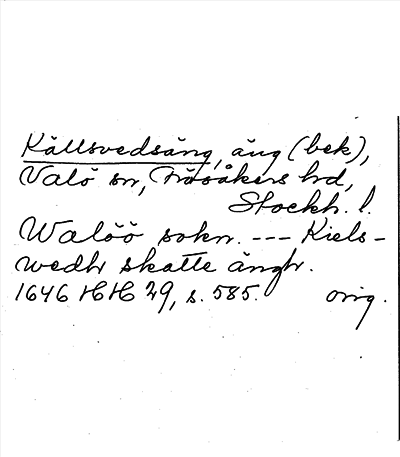 Källsvedsäng, äng (bek),
Valö sn, Frösåkers hd,
Stockh. l.
Walöö sokn. --- Kiels-
wedh skatte ängh.
1646 HH 29, s. 585. orig.